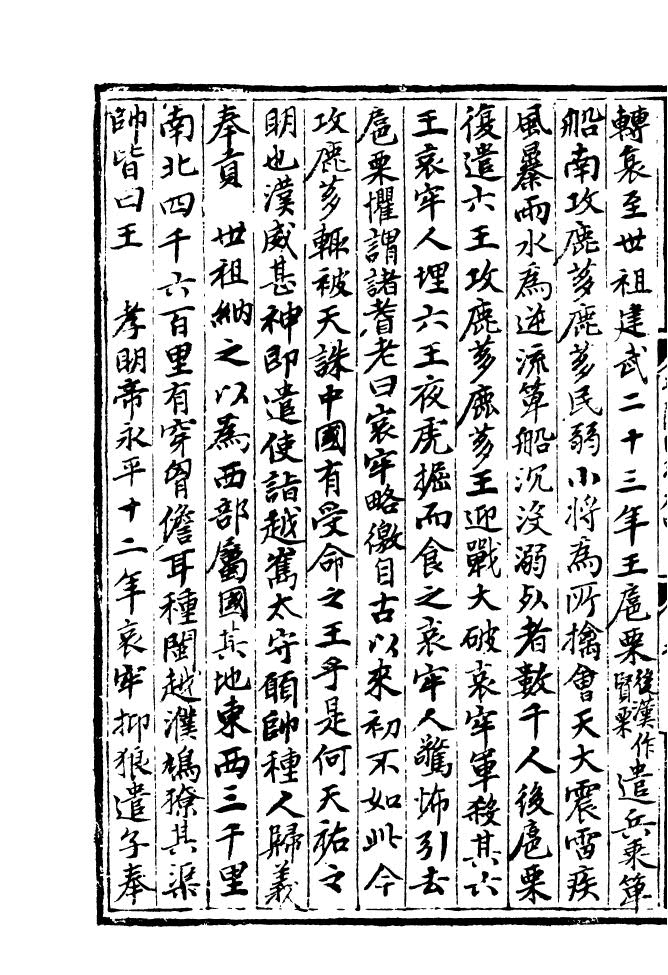 轉裒至世祖建武二十三年王扈栗後漢作賢栗遣兵乘箄
船南攻鹿茤鹿茤民弱小將為所擒會天大震雷疾
風暴雨水為逆流箄船沉没溺死者數千人後扈栗
復遣六王攻鹿茤鹿茤王迎戰大破哀牢軍殺其六
王哀牢人埋六王夜虎掘而食之哀牢人驚怖引去
扈栗懼謂諸耆老曰哀牢略徼自古以來初不如此今
攻鹿茤輙被天誅中國有受命之王乎是何天祐之
明也漢威甚神即遣使詣越嶲太守願帥種人歸義
奉貢　世祖納之以為西部屬國其地東西三千里
南北四千六百里有穿胷儋耳種閩越濮鳩獠其渠
帥皆曰王　孝明帝永平十二年哀牢抑狼遣子奉